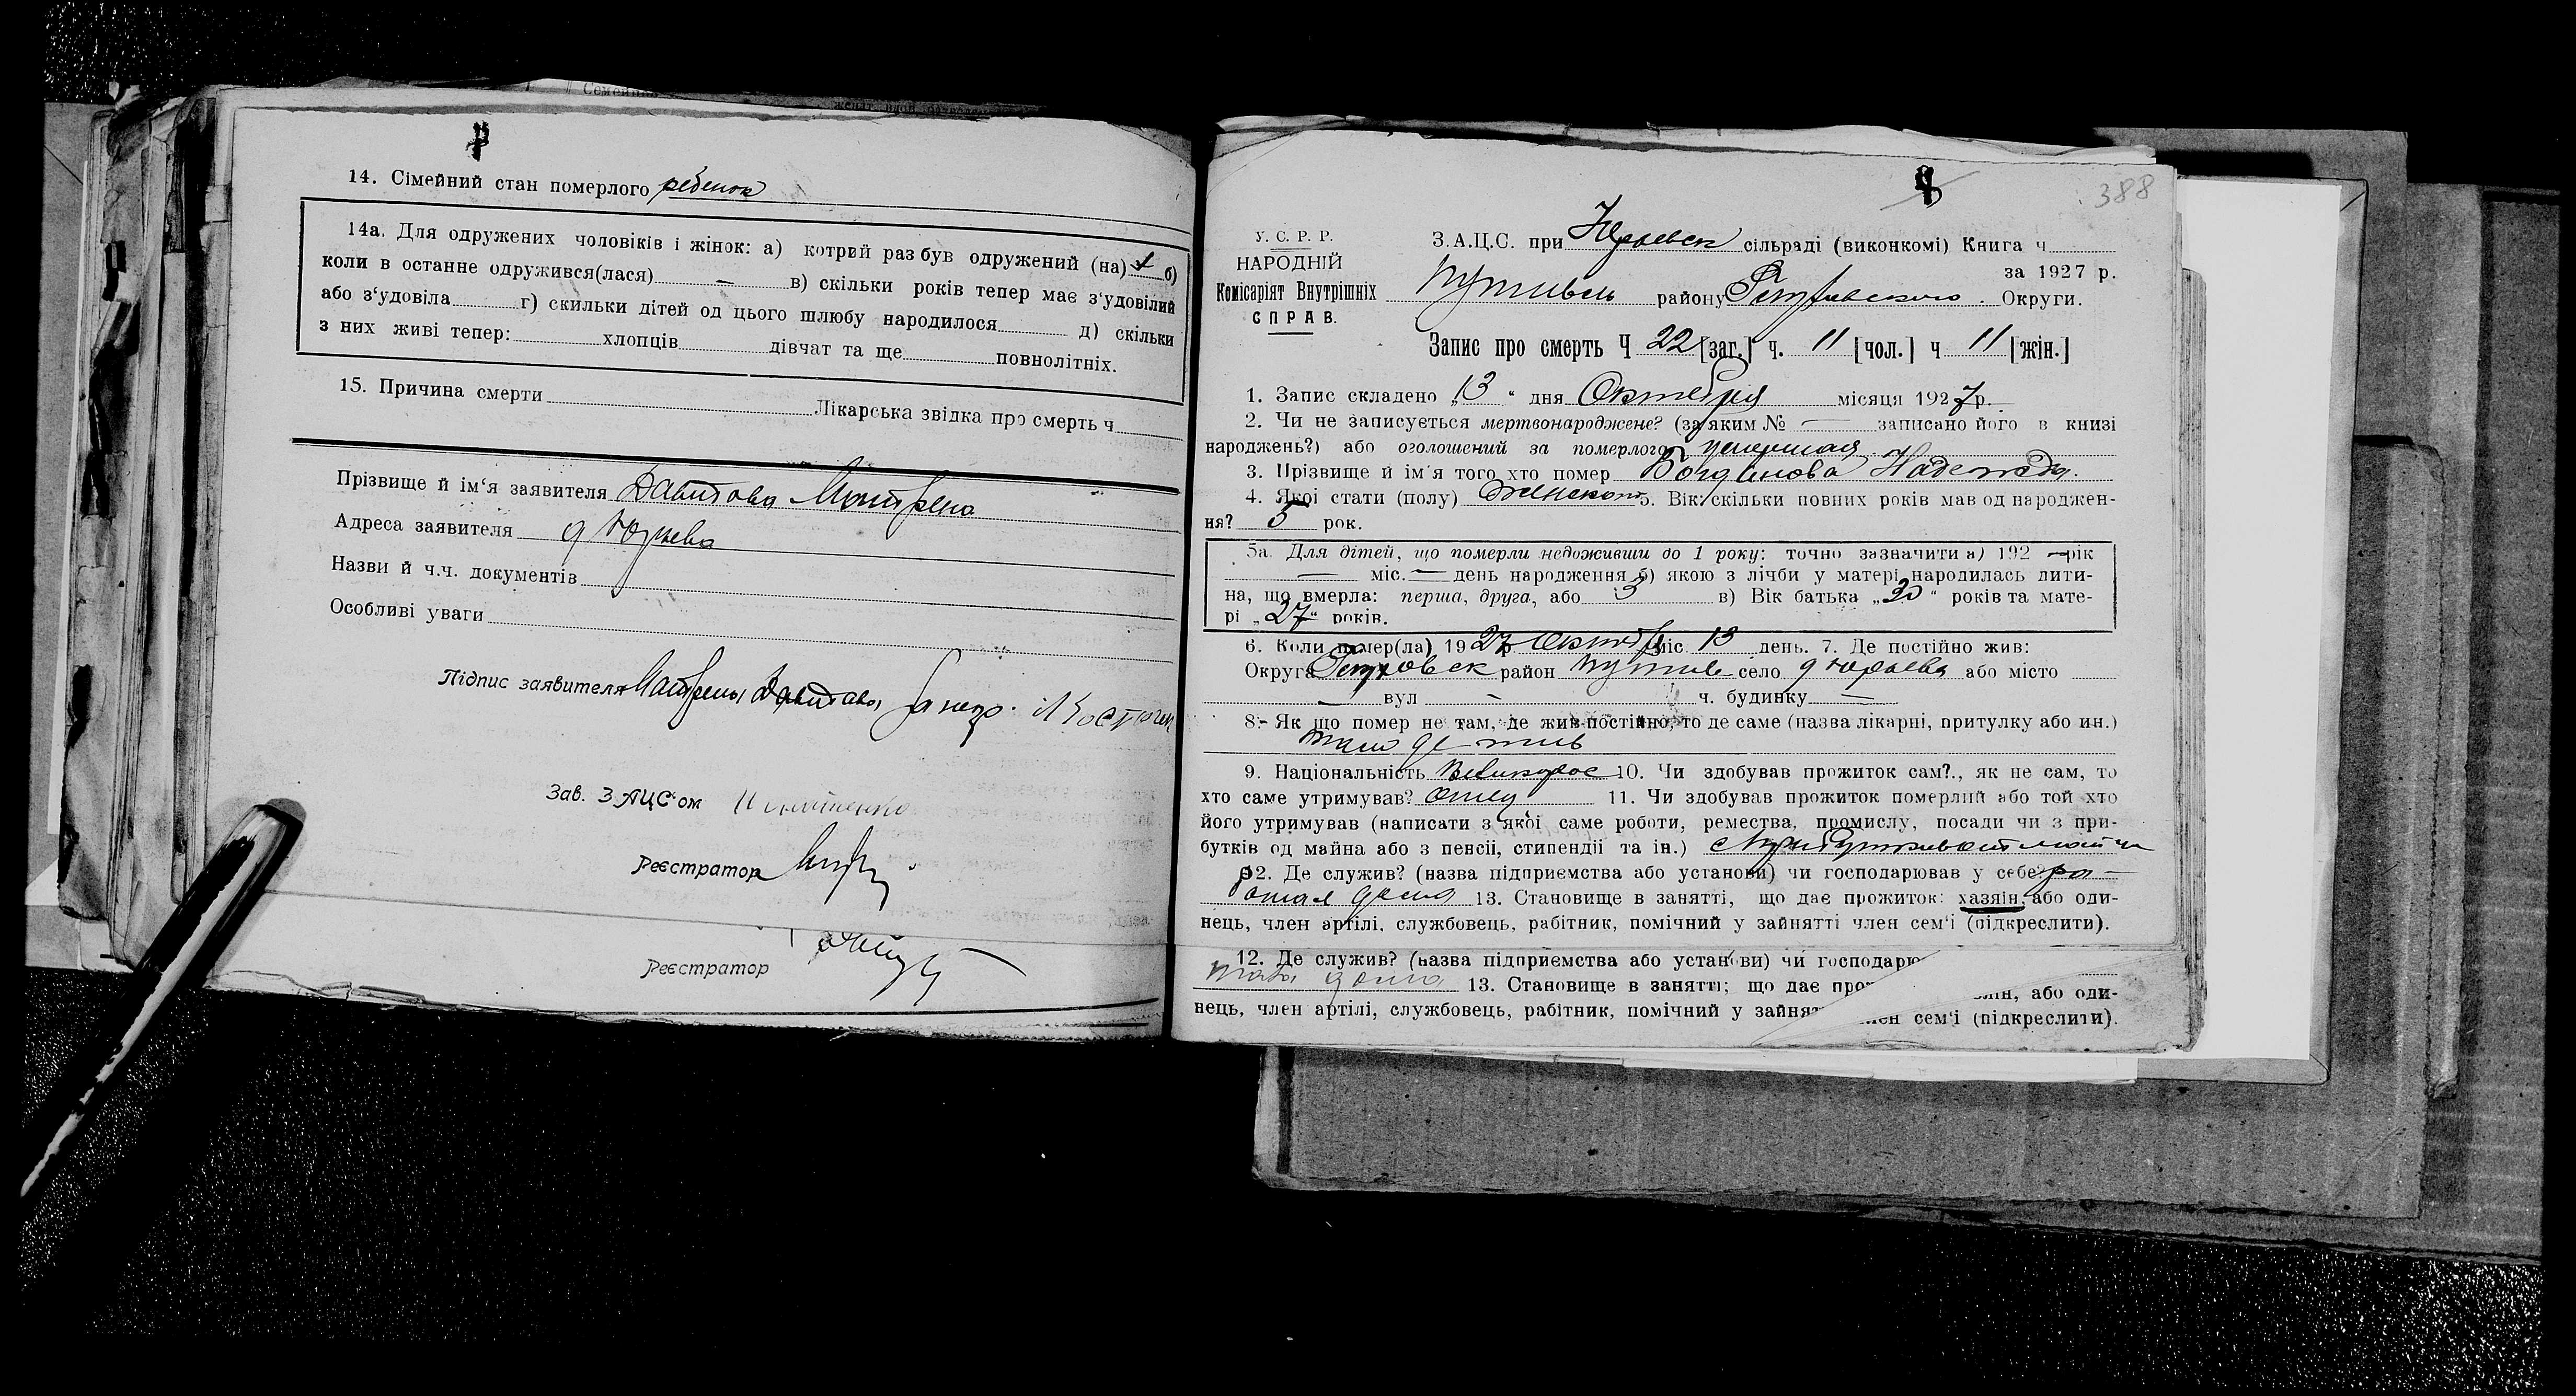 14. Сімейний стан померлого ребенок
14а. Для одружених чоловіків і жінок: а) котрий раз був одружений (на) б)
коли в останне одружився(лася) — в) скільки років тепер має з‘удовілий
або з‘удовіла г) скільки дітей од цього шлюбу народилося д) скільки
з них живі тепер: хлопців дівчат та ще повнолітніх.
15. Причина смерти Лікарська звідка про смерть ч
Прізвище й ім‘я заявителя Давидова Матрена
Адреса заявителя д Юрьева
Назви й ч.ч. документів
Особливі уваги
Підпис заявителя Матрены Давидова
Зав. ЗАЦС‘ом
Реєстратор
Реєстратор
388
У. С. Р. Р.
НАРОДНІЙ
Комісаріят Внутрішніх
СПРАВ.
З.А.Ц.С. при Юрьевск сільраді (виконкомі) Книга ч
за 1927 р.
Путивль району Округи.
Запис про смерть Ч 22 [заг.] ч. 11 [чол.] ч 11 [жін.]
1. Запис складено „13“ дня Октября місяця 1927 р.
2. Чи не записується мертвонароджене? (за яким № — записано його в книзі
народжень?) або оголошений за померлого умершая
3. Прізвище й ім‘я того хто помер Богданова Надежда.
4. Якої стати (полу) Женского 5. Вік: скільки повних років мав од народжен-
ня? 5 рок.
5а. Для дітей, що померли недоживши до 1 року: точно зазначити а) 192 — рік
— міс. — день народження б) якою з лічби у матері народилась дити-
на, що вмерла: перша, друга, або 3 в) Вік батька „30“ років та мате-
рі „27“ років.
6. Коли помер(ла) 1927 р. Октяб міс 13 день. 7. Де постійно жив:
Округа район Путивл село д Юрьева або місто
— вул — ч. будинку —
8. Як що помер не там, де жив постійно, то де саме (назва лікарні, притулку або ин.)
там где жив
9. Національність Великорос 10. Чи здобував прожиток сам?., як не сам, то
хто саме утримував? отец 11. Чи здобував прожиток померлий або той хто
його утримував (написати з якої саме роботи, ремества, промислу, посади чи з при-
бутків од майна або з пенсії, стипендії та ін.)
12. Де служив? (назва підприємства або установи) чи господарював у себе ра-
ботал дома 13. Становище в занятті, що дає прожиток: хазяін, або оди-
нець, член артілі, службовець, рабітник, помічний у зайнятті член сем‘і (підкреслити).
12. Де служив? (назва підприємства або установи) чи господарю
дома 13. Становище в занятті; що дає про або оди-
нець, член артілі, службовець, рабітник, помічний у зайнят сем‘і (підкреслити).